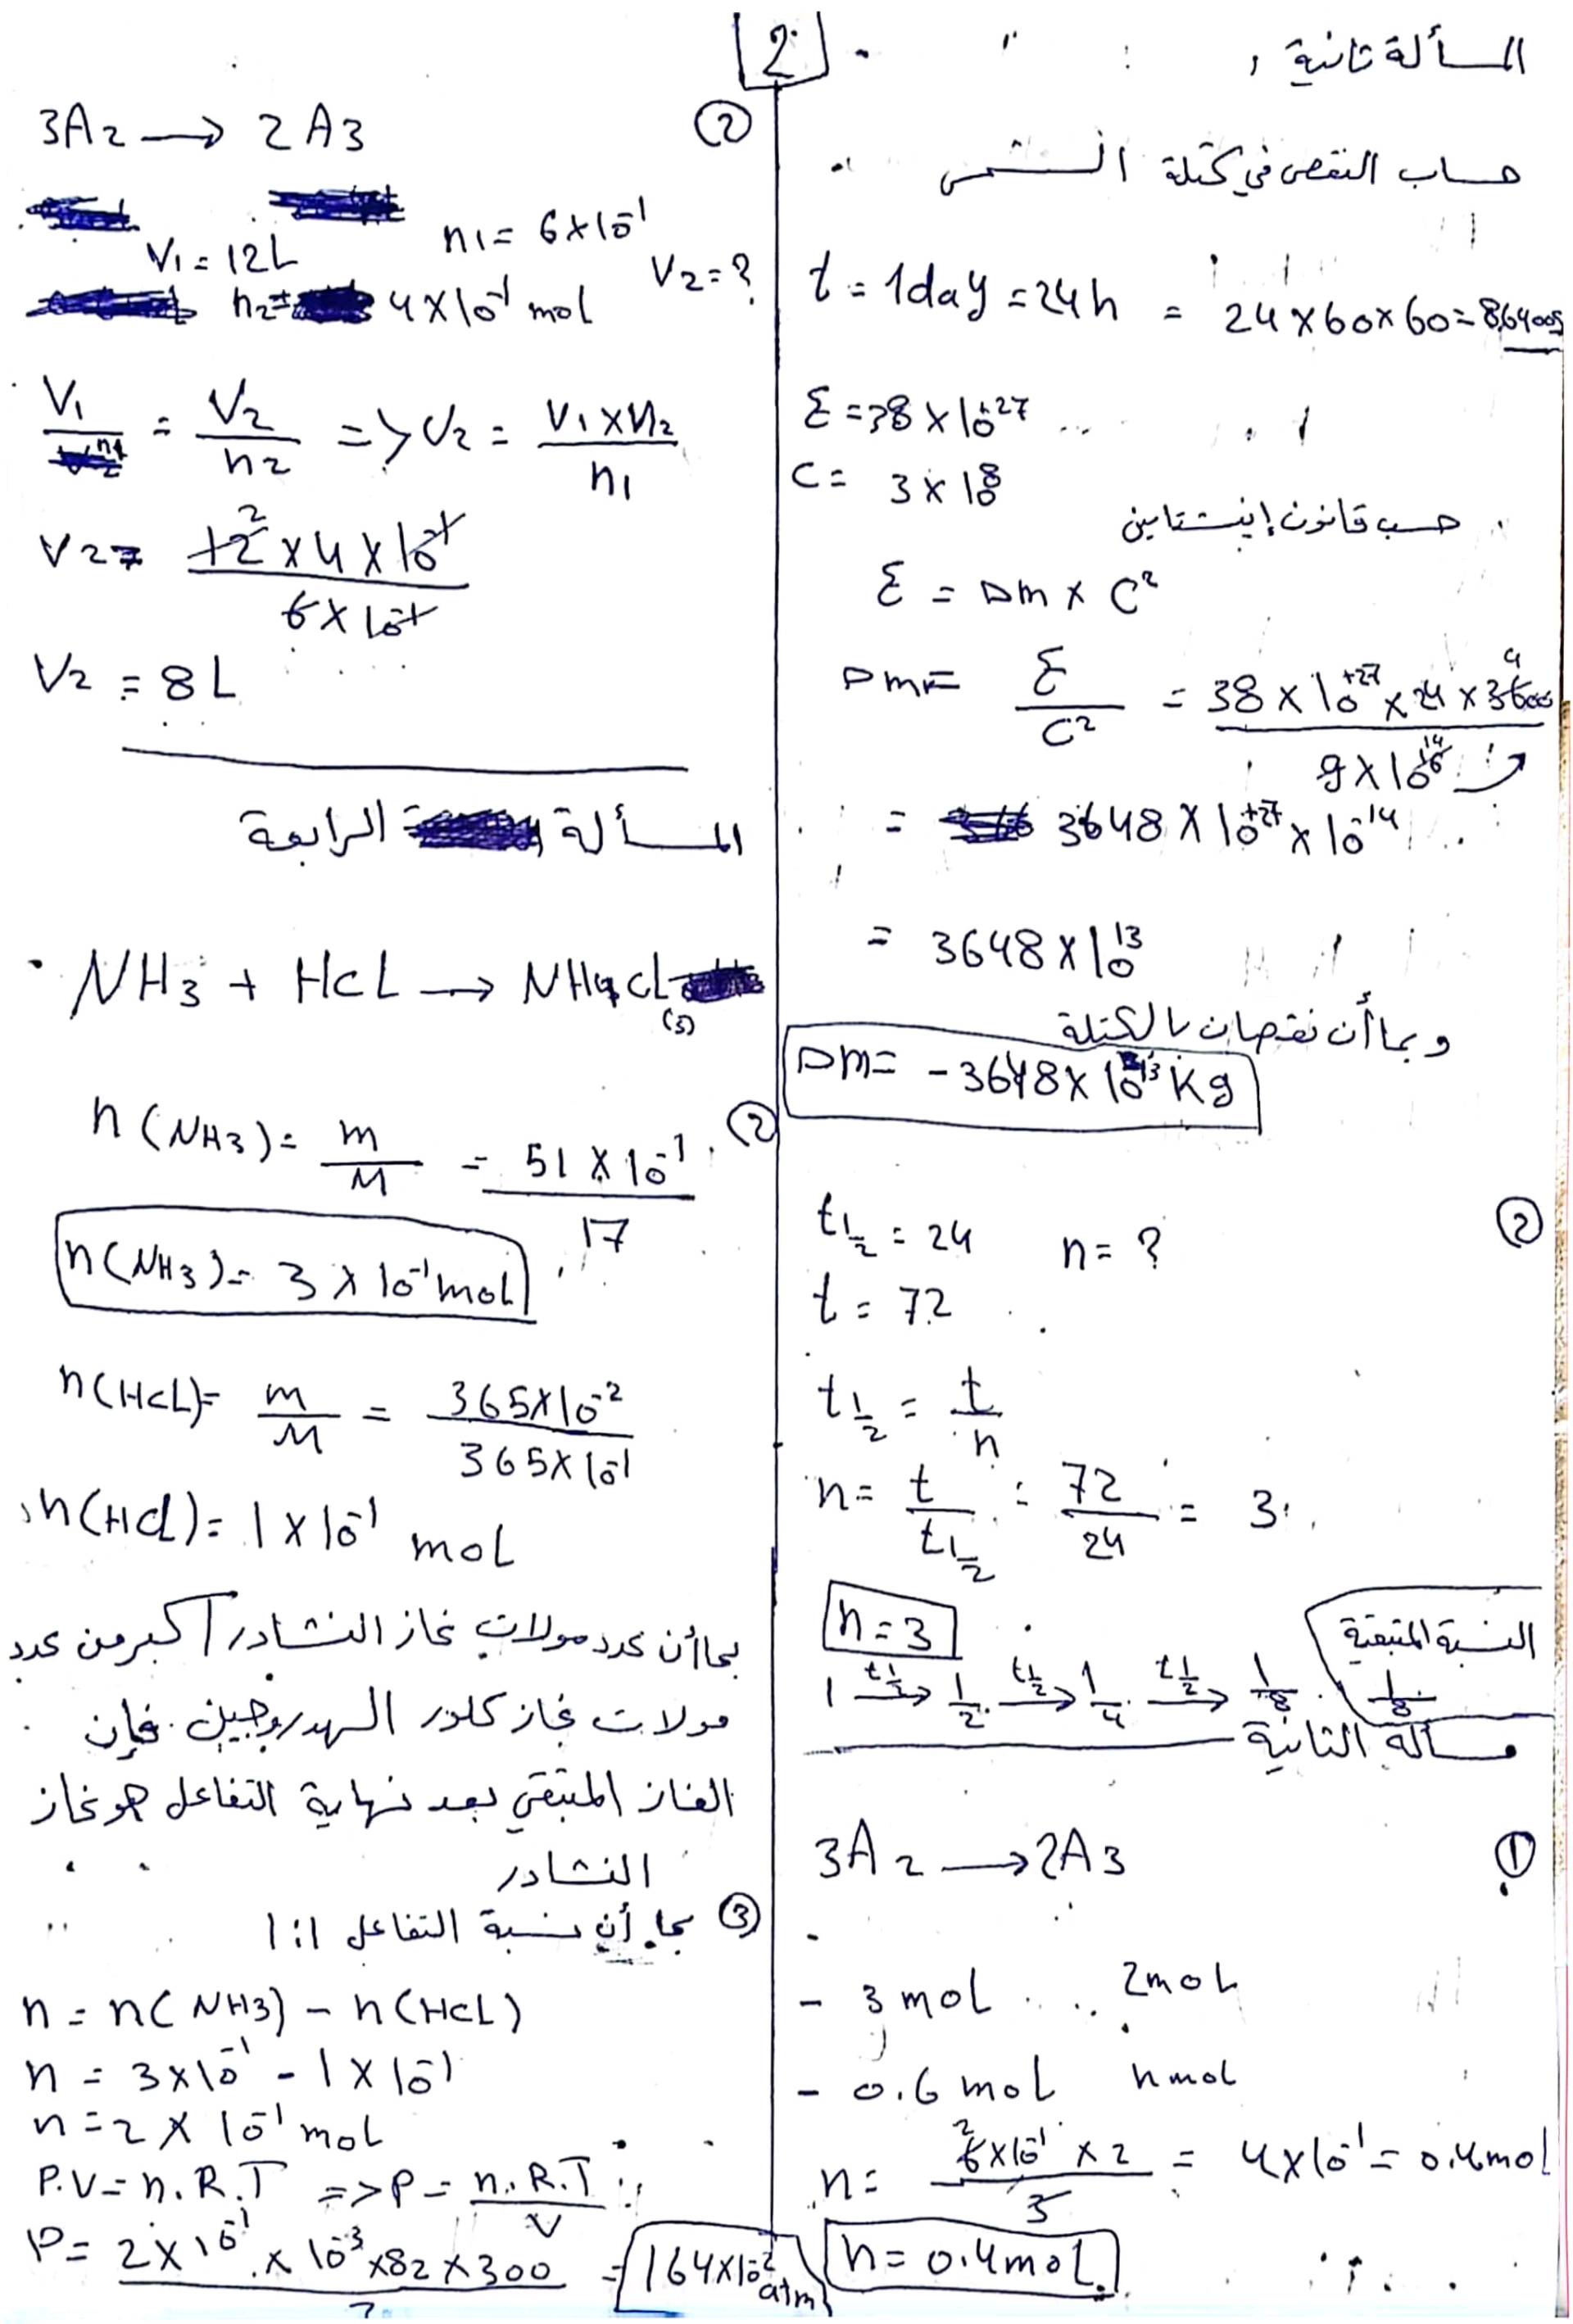 2
المسألة ثانية
حساب النقص في كتلة الشمس
t = 1day = 24h = 24 × 60 × 60 = 86400s
Ɛ = 38 × 10^+27
C = 3 × 10^8
حسب قانون إينشتاين
Ɛ = Δm × C²
Δm = Ɛ / C² = 38 × 10^+27 × 24 × 3600 / 9 × 10^16
= 3648 × 10^+27 × 10^-14
= 3648 × 10^13
وبما أن نقصان بالكتلة
Δm = - 3648 × 10^13 Kg
②
t½ = 24 n = ?
t = 72
t½ = t / n
n = t / t½ = 72 / 24 = 3
n = 3
النسبة المتبقية
1 →(t½) 1/2 →(t½) 1/4 →(t½) 1/8
1/8
مسألة الثانية
①
3A2 → 2A3
- 3 mol 2mol
- 0.6 mol n mol
n = 6×10^-1 × 2 / 3 = 4×10^-1 = 0.4mol
n = 0.4mol
②
3A2 → 2A3
V1 = 12L n1 = 6×10^-1
n2 = 4×10^-1 mol V2 = ?
V1 / n1 = V2 / n2 => V2 = V1 × n2 / n1
V2 = 12 × 4 × 10^-1 / 6 × 10^-1
V2 = 8 L
المسألة الرابعة
NH3 + HCL → NH4CL (s)
②
n(NH3) = m / M = 51 × 10^-1 / 17
n(NH3) = 3 × 10^-1 mol
n(HCL) = m / M = 365×10^-2 / 365×10^-1
n(HCl) = 1 × 10^-1 mol
بما أن عدد مولات غاز النشادر أكبر من عدد
مولات غاز كلور الهدروجين فإن
الغاز المتبقي بعد نهاية التفاعل هو غاز
النشادر
③ بما أن نسبة التفاعل 1:1
n = n(NH3) - n(HCL)
n = 3×10^-1 - 1×10^-1
n = 2 × 10^-1 mol
P.V = n.R.T => P = n.R.T / V
P = 2×10^-1 × 10^-3 × 82 × 300 = 164×10^-2 atm